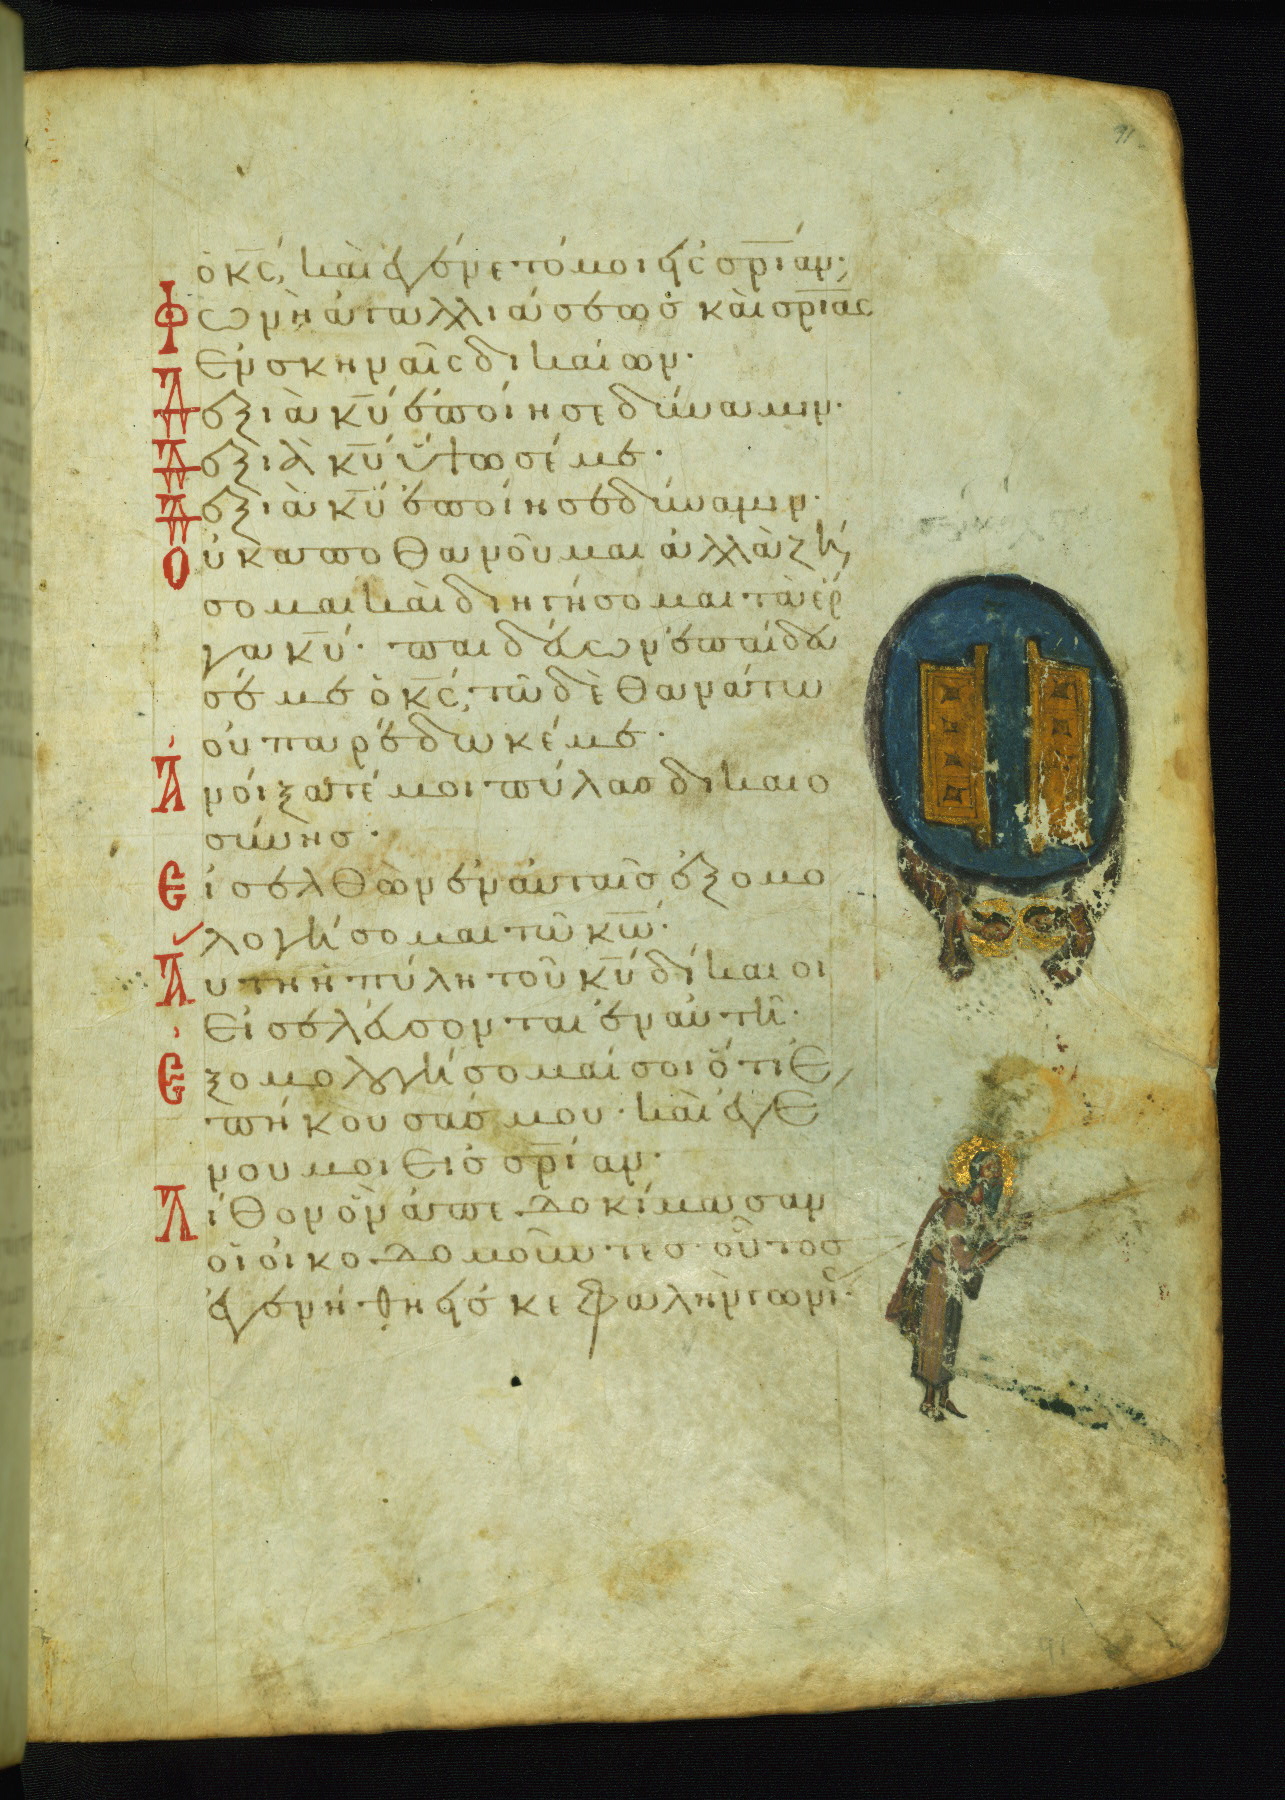 91
ὁ κ̅ς, καὶ ἐγένετό μοι εἰς σρ̅ίαν·
Φωνὴ ἀγαλλιάσεως καὶ σρ̅ίας
Ἐν σκηναῖς δικαίων·
Δεξιὰ κ̅υ ἐποίησε δύναμιν·
Δεξιὰ κ̅υ ὕψωσέ με·
Δεξιὰ κ̅υ ἐποίησε δύναμιν·
Οὐκ ἀποθανοῦμαι ἀλλὰ ζή
σομαι καὶ διηγήσομαι τὰ ἔρ
γα κ̅υ· παιδεύων ἐπαίδευ
σέ με ὁ κ̅ς, τῶ δὲ θανάτω
οὐ παρέδωκέ με·
Ἀνοίξατέ μοι πύλας δικαιο
σύνης·
Εἰσελθὼν ἐν αὐταῖς ἐξομο
λογήσομαι τῶ κ̅ω·
Αὕτη ἡ πύλη τοῦ κ̅υ δίκαιοι
Εἰσελεύσονται ἐν αὐτῆ·
Ἐξομολογήσομαί σοι ὅτι ἐ
πήκουσάς μου· καὶ ἐγέ
νου μοι εἰς σρ̅ίαν·
Λίθον ὃν ἀπεδοκίμασαν
οἱ οἰκοδομοῦντες οὗτος
ἐγενήθη εἰς κεφαλὴν γωνί·
91